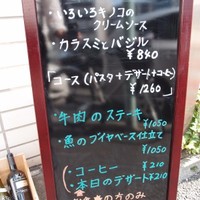 ・いろいろキノコの
クリームソース
・カラスミとバジル
￥840
「コース(パスタ+デザート+コーヒ)
￥1260」
・牛肉のステーキ
￥1050
・魚のブイヤベース仕立て
￥1050
・コーヒー ￥210
・本日のデザート￥210
の方のみ